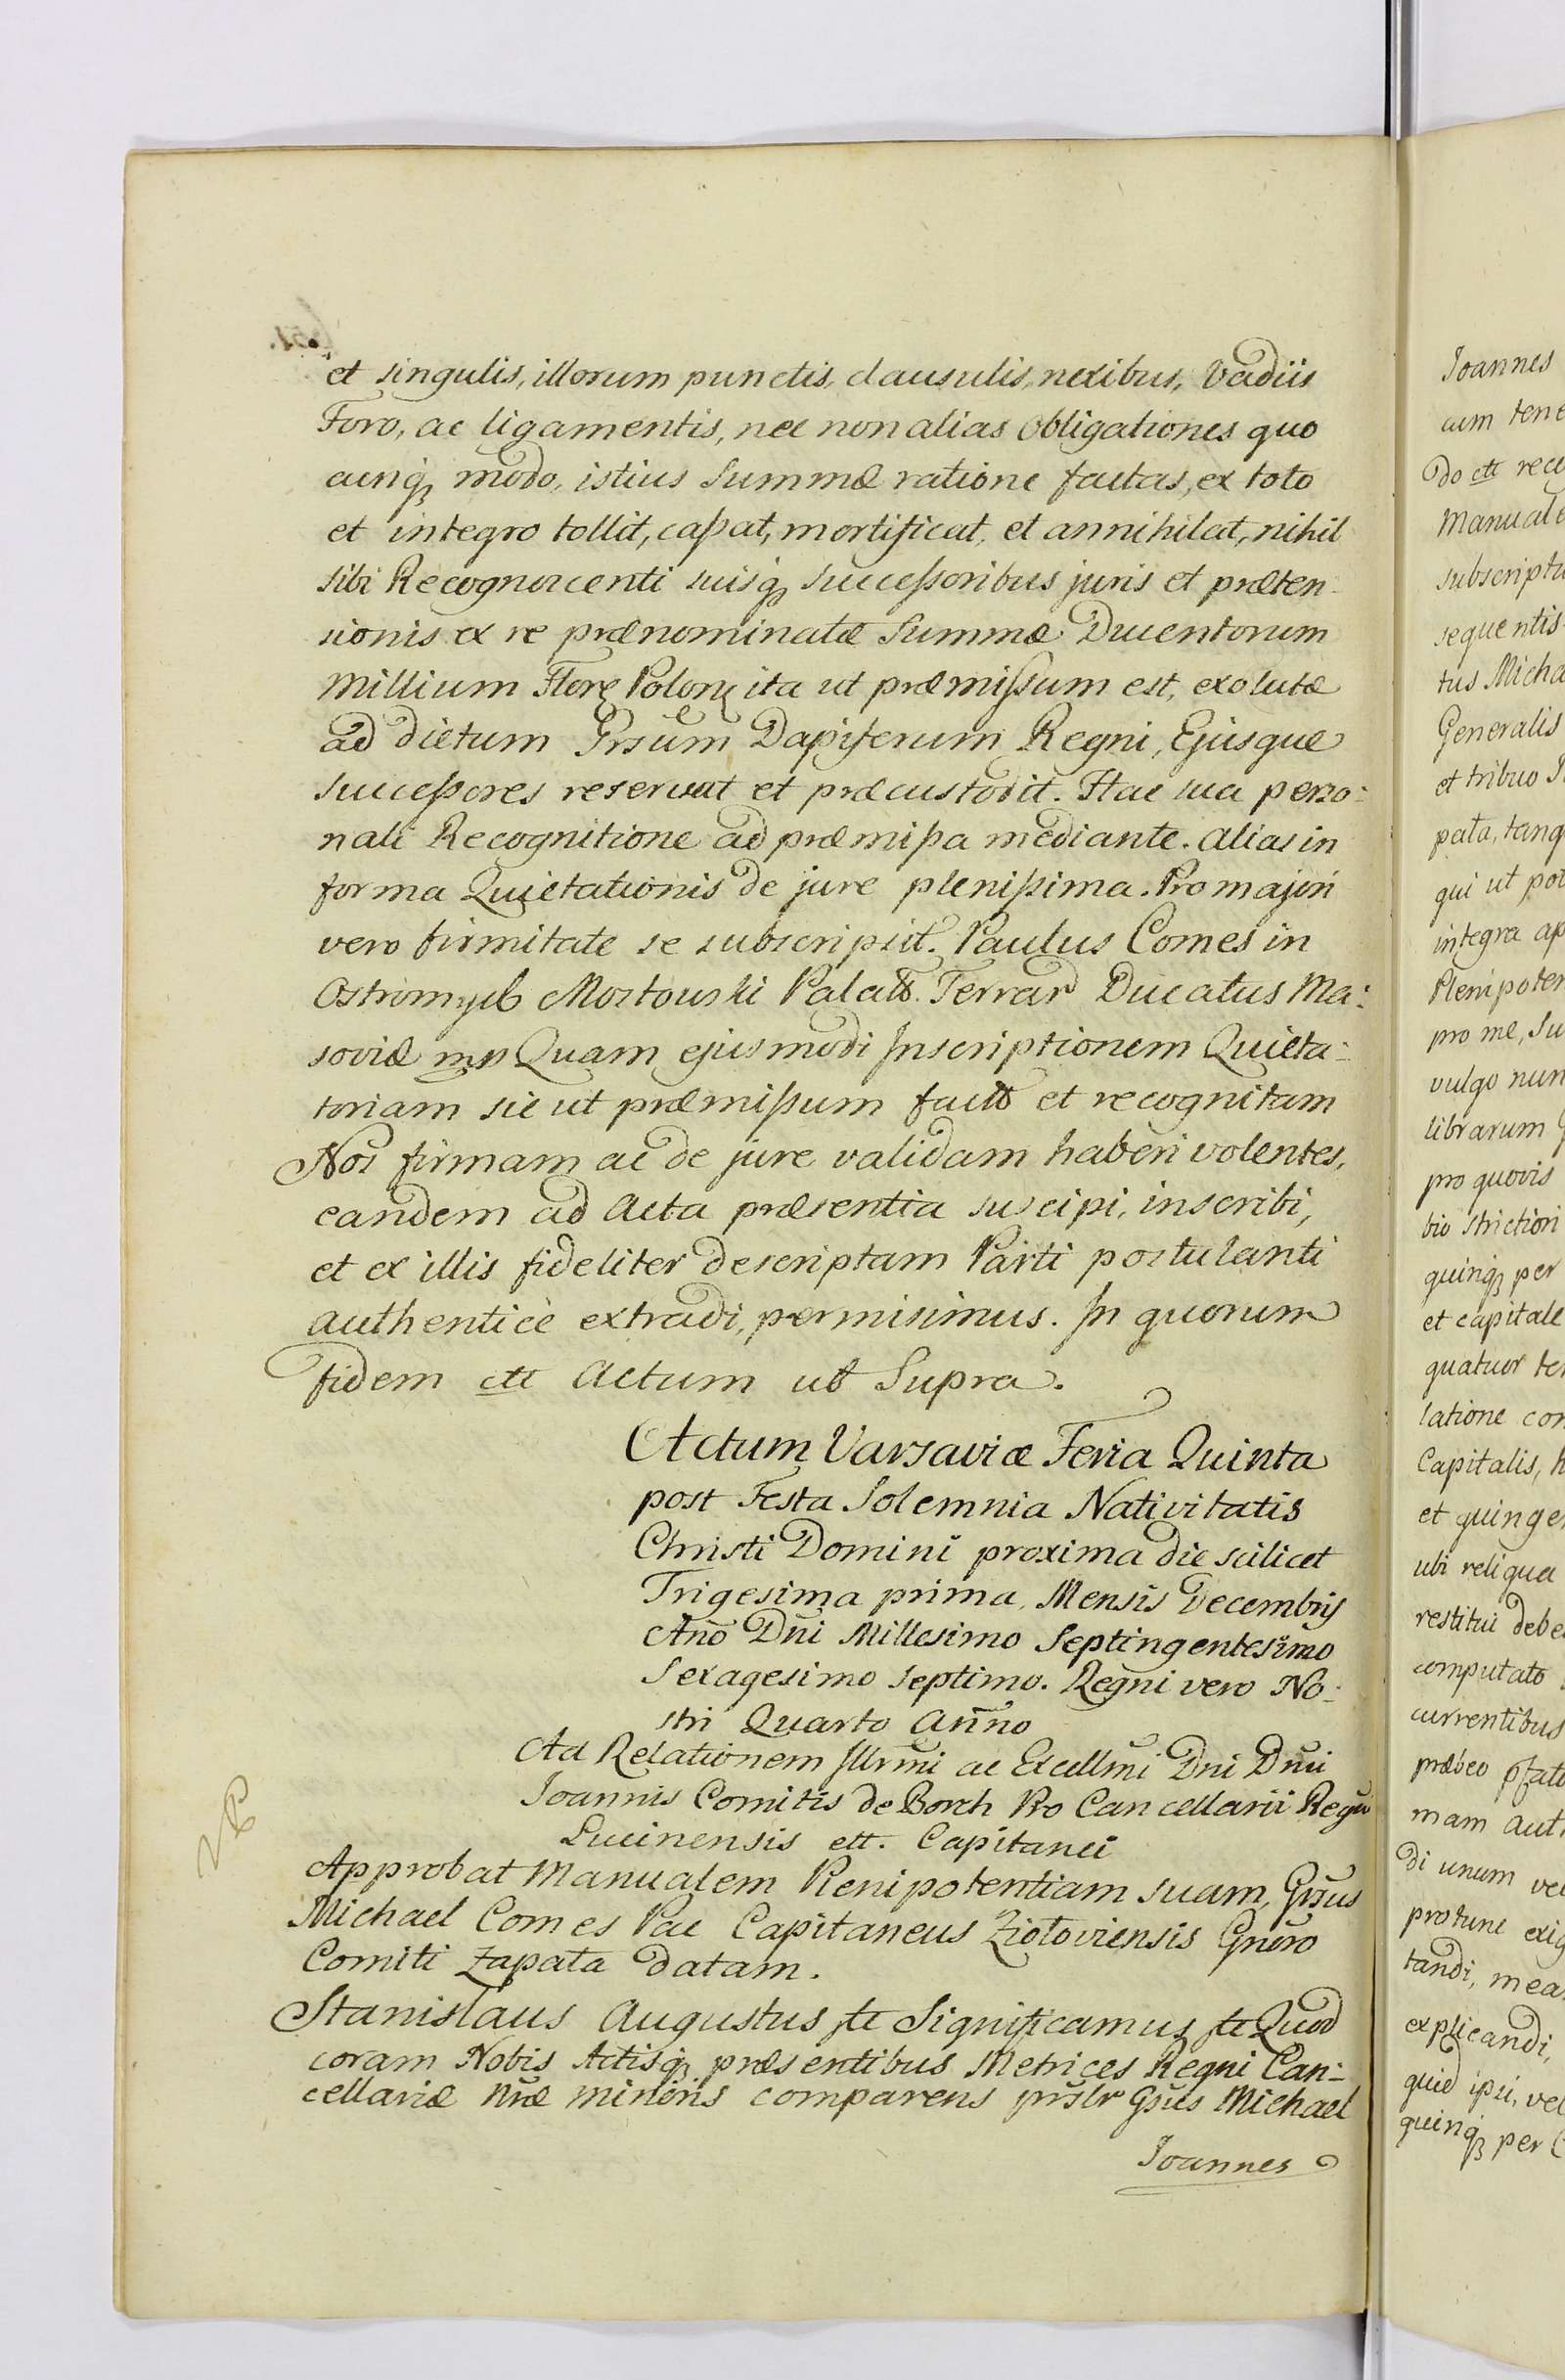 et singulis, illorum punctis, clausulis, nexibus, Vadiis
Foro, ac ligamentis, nec non alias obligationes quo
cunq, modo, istius Summæ ratione factas, ex toto
et integro tollit, cassat, mortificat, et annihilat, nihil
sibi Recognoscenti suisq, successoribus juris et præten-
sionis ex re prænominatæ Summæ Ducentorum
Millium Flor Polon ita ut præmissum est, exolutæ
ad dictum Grsum Dapiferum Regni, Ejusque
successores reservat et præcustodit. Hac sua perso:
nali Recognitione ad præmissa mediante. alias in
forma Quietationis de jure plenissima. Pro majori
vero firmitate se subscripsit. Paulus Comes in
Ostromycb Mostowski Palatt. Terrar Ducatus Ma:
soviæ mp Quam ejusmodi Inscriptionem Quieta:
toriam sic ut præmissum fact et recognitam
Nos firmam ac de jure validam haberi volentes,
eandem ad Acta præsentia suscipi, inscribi,
et ex illis fideliter descriptam Parti postulanti
authenticè extradi, permisimus. In quorum
fidem ett Actum ut Supra.
Actum Varsaviæ Feria Quinta
post Festa Solemnia Nativitatis
Christi Domini proxima die scilicet
Trigesima prima, Mensis Decembris
Año Dñi Millesimo Septingentesimo
Sexagesimo septimo. Regni vero No:
stri Quarto Anno
Ad Relationem Illrmi ac Excellmi Dni Dnii
Joannis Comitis de Borch Pro Cancellarii Regni
Lucinensis ett. Capitanei
Approbat Manualem Plenipotentiam suam, Grsus
Michael Comes Pac Capitaneus Ziołoviensis Gnoro
Comiti Zapata datam.
Stanislaus Augustus ett Significamus ett Quod
coram Nobis Actisq, præsentibus Metrices Regni Can:
cellariæ Nræ minoris comparens prslr Gsus Michael
Joannes
Joannes
cum tene
do ett rec
Manuale
subscript
sequentis
tus Micha
Generalis
et tribuo
pata, tanq
qui ut pot
integra ap
Plenipoten
pro me, Su
vulgo nun
librarum
pro quovis
bio strictiori
quinq, per
et capitale
quatuor te
latione con
Capitalis, h
et quinge
ubi reliqua
restitui debe
computato
currentibus
præbeo pfato
mam aut
di unum vel
protunc exig
tandi, mea
explicandi,
quid ipsi, vel
quinq, per C